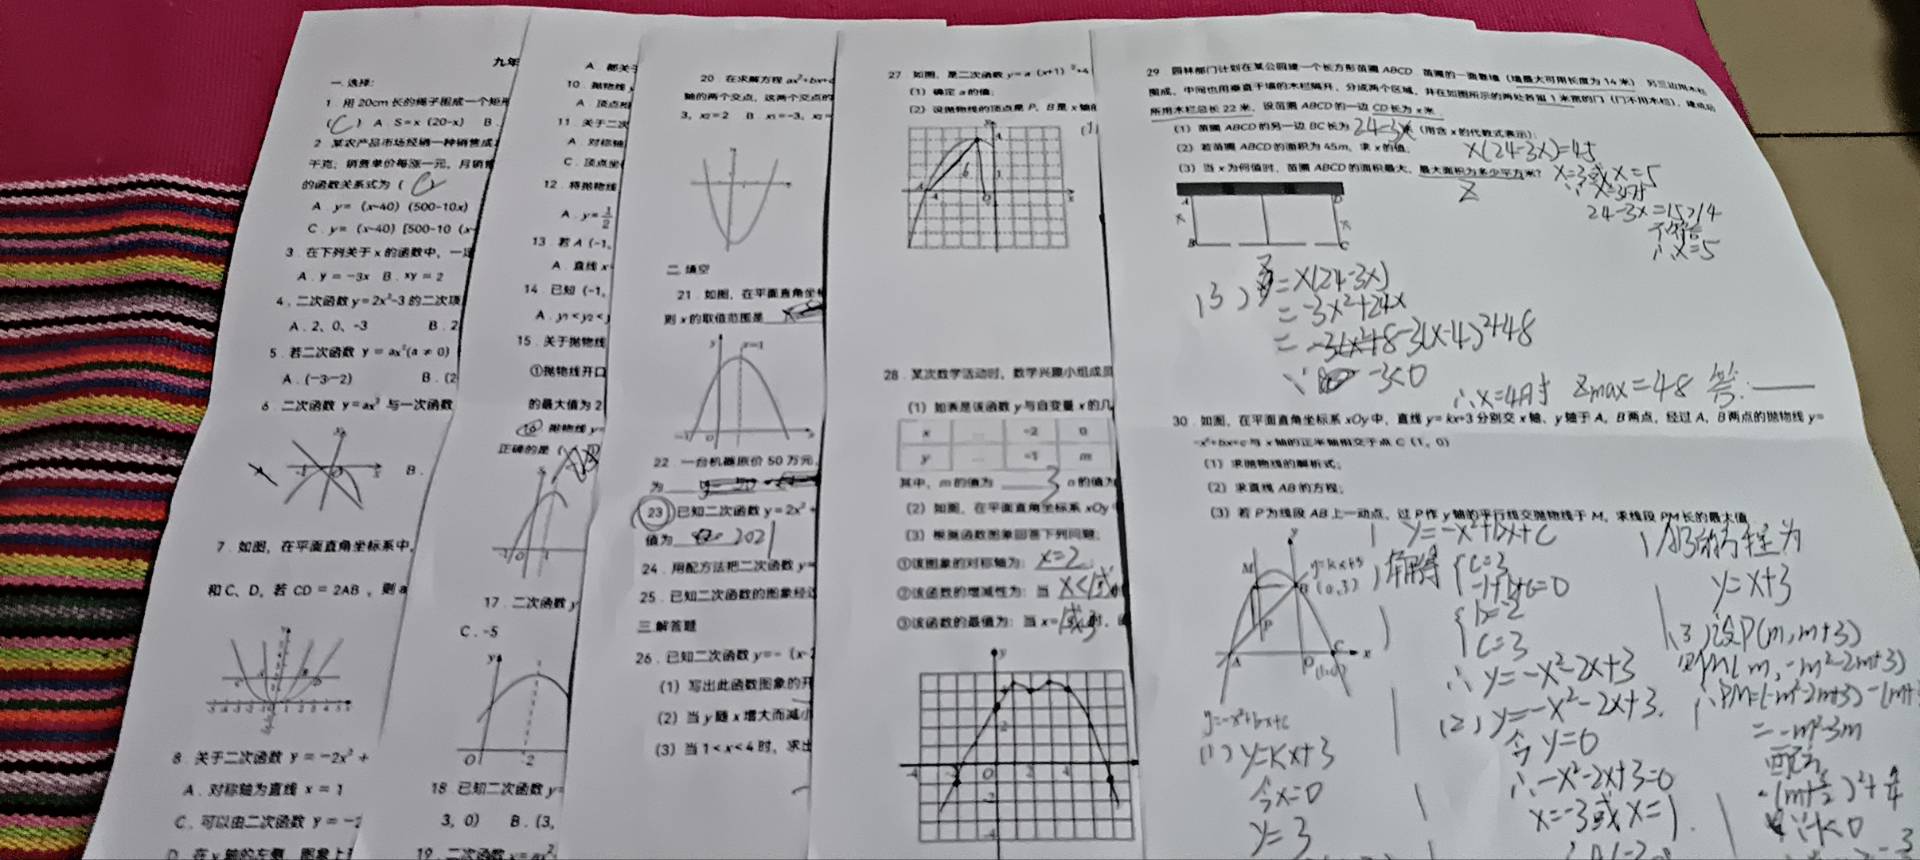 九年
一. 选择:
1. 用 20cm 长的绳子围成一个矩形
( C ) A. S=x (20-x) B.
2. 某农产品市场经销一种销售成本
千克; 销售单价每涨一元, 月销售
的函数关系式为 ( C )
A. y= (x-40) (500-10x)
C. y= (x-40) [500-10 (x-
3. 在下列关于 x 的函数中, 一定
A. y = -3x B. xy = 2
4. 二次函数 y=2x²-3 的二次项
A. 2、0、-3 B. 2
5. 若二次函数 y = ax²(a ≠ 0)
A. (-3,-2) B. (2
6. 二次函数 y=ax² 与一次函数
B.
7. 如图, 在平面直角坐标系中,
和 C、D, 若 CD = 2AB , 则 a
8. 关于二次函数 y = -2x² +
A. 对称轴为直线 x = 1
C. 可以由二次函数 y = -2
D. 在 y 轴的左侧, 图象上
A. 都关于
10. 抛物线 y
A. 顶点
11. 关于二次
A. 对称轴
C. 顶点坐
12. 将抛物线
A. y=1/2
13. 若 A (-1,
A. 直线 x
14. 已知 (-1,
A. y₁ < y₂ < y
15. 关于抛物线
①抛物线开口
的最大值为 2
16. 抛物线 y=
正确的是 (
17. 二次函数 y
C. -5
y
O 2
18. 已知二次函数 y=
3, 0) B. (3,
19. 二次函数 y=ax²
20. 在求解方程 ax²+bx+c
轴的两个交点, 这两个交点的
3, x₂=2 B. x₁=-3, x₂=
二. 填空
21. 如图, 在平面直角坐标
则 x 的取值范围是
y x=1
-1 O x
22. 一台机器原价 50 万元,
为
23. 已知二次函数 y=2x² +
值为 2021
24. 用配方法把二次函数 y=
25. 已知二次函数的图象经过
三.解答题
26. 已知二次函数 y=- (x-
(1) 写出此函数图象的开
(2) 当 y 随 x 增大而减小
(3) 当 1<x<4 时, 求出
27. 如图, 是二次函数 y=a (x+1) ²+4
(1) 确定 a 的值;
(2) 设抛物线的顶点是 P, B 是 x 轴
28. 某次数学活动时, 数学兴趣小组成员
(1) 如表是该函数 y 与自变量 x 的几
x … -2 0
y … -1 m
其中, m 的值为 3 n 的值为
(2) 如图, 在平面直角坐标系 xOy
(3) 根据函数图象回答下列问题:
①该图象的对称轴为: x=2 ;
②该函数的增减性为: 当 x<1或
③该函数的最值为: 当 x= 1或3 时,
29. 园林部门计划在某公园建一个长方形苗圃 ABCD. 苗圃的一面靠墙 (墙最大可用长度为 14 米). 另三边用木栏
围成, 中间也用垂直于墙的木栏隔开, 分成两个区域, 并在如图所示的两处各留 1 米宽的门 (门不用木栏), 建成后
所用木栏总长 22 米, 设苗圃 ABCD 的一边 CD 长为 x 米.
(1) 苗圃 ABCD 的另一边 BC 长为 24-3x (用含 x 的代数式表示);
(2) 若苗圃 ABCD 的面积为 45m, 求 x 的值;
x(24-3x)=45
(3) 当 x 为何值时, 苗圃 ABCD 的面积最大, 最大面积为多少平方米?
Z
x=3或x=5
∵x=3时
24-3x=15>14
不符合
∴x=5
A D
B C
(3) Z=x(24-3x)
=-3x²+24x
-3(x-4)²+48
∵-3<0
∴x=4时 Zmax=48 答:
30. 如图, 在平面直角坐标系 xOy 中, 直线 y= kx+3 分别交 x 轴、y 轴于 A, B 两点, 经过 A, B 两点的抛物线 y=
-x²+bx+c 与 x 轴的正半轴相交于点 C (1, 0)
(1) 求抛物线的解析式;
(2) 求直线 AB 的方程;
(3) 若 P 为线段 AB 上一动点, 过 P 作 y 轴的平行线交抛物线于 M, 求线段 PM 长的最大值.
y=kx+3
(0,3)
y=-x²+bx+c
(1) y=kx+3
令x=0
y=3
y=-x²+bx+c
解得 { c=3
-1+b+c=0
{ b=-2
c=3
∴y=-x²-2x+3
(2) y=-x²-2x+3.
令y=0
∴-x²-2x+3=0
x=-3或x=1.
AB的方程为
y=x+3
(3) 设P(m,m+3)
则M(m,-m²-2m+3)
∴PM=(-m²-2m+3)-(m+
=-m²-3m
配方